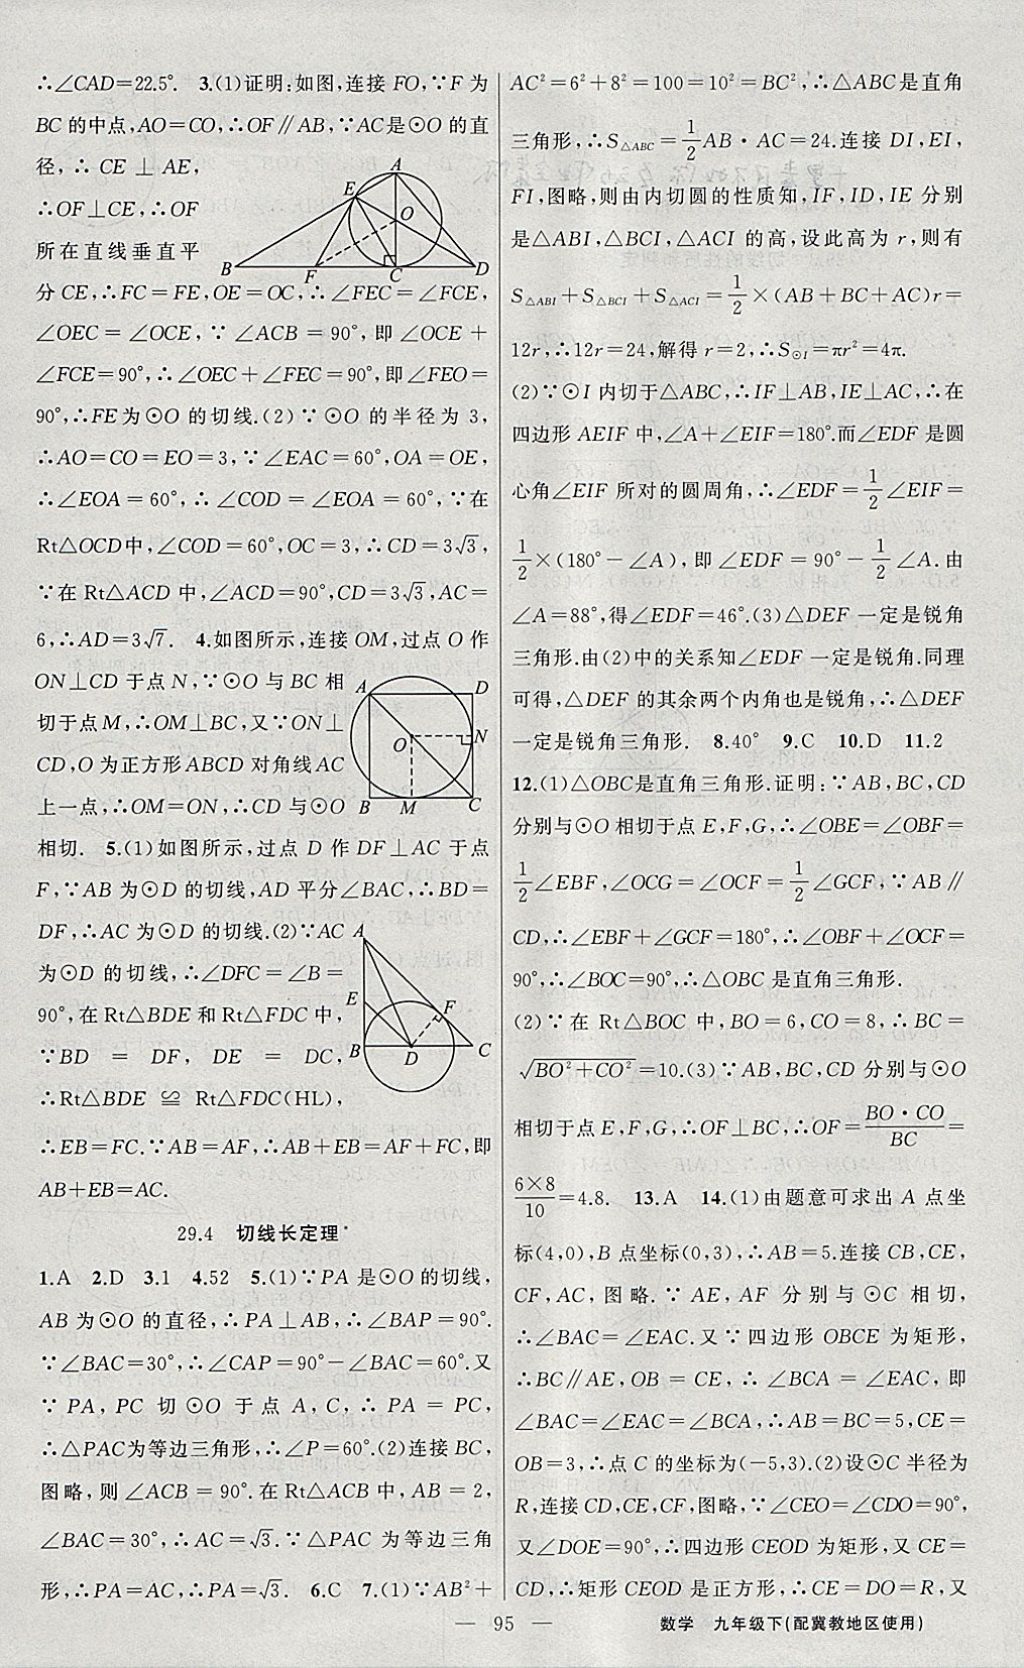 ∴∠CAD=22.5°. 3.(1)证明:如图,连接FO,∵F为
BC的中点,AO=CO,∴OF∥AB,∵AC是⊙O的直
径,∴CE⊥AE,
∴OF⊥CE,∴OF
所在直线垂直平
A
E
O
B
F
C
D
分CE,∴FC=FE,OE=OC,∴∠FEC=∠FCE,
∠OEC=∠OCE,∵∠ACB=90°,即∠OCE+
∠FCE=90°,∴∠OEC+∠FEC=90°,即∠FEO=
90°,∴FE为⊙O的切线.(2)∵⊙O的半径为3,
∴AO=CO=EO=3,∵∠EAC=60°,OA=OE,
∴∠EOA=60°,∴∠COD=∠EOA=60°,∵在
Rt△OCD中,∠COD=60°,OC=3,∴CD=3√3,
∵在Rt△ACD中,∠ACD=90°,CD=3√3,AC=
6,∴AD=3√7. 4.如图所示,连接OM,过点O作
ON⊥CD于点N,∵⊙O与BC相
切于点M,∴OM⊥BC,又∵ON⊥
CD,O为正方形ABCD对角线AC
上一点,∴OM=ON,∴CD与⊙O
A
D
O
N
B
M
C
相切. 5.(1)如图所示,过点D作DF⊥AC于点
F,∵AB为⊙D的切线,AD平分∠BAC,∴BD=
DF,∴AC为⊙D的切线.(2)∵AC
为⊙D的切线,∴∠DFC=∠B=
90°,在Rt△BDE和Rt△FDC中,
∵BD=DF,DE=DC,
∴Rt△BDE≌Rt△FDC(HL),
A
E
F
B
D
C
∴EB=FC.∵AB=AF,∴AB+EB=AF+FC,即
AB+EB=AC.
29.4 切线长定理
1.A 2.D 3.1 4.52 5.(1)∵PA是⊙O的切线,
AB为⊙O的直径,∴PA⊥AB,∴∠BAP=90°.
∵∠BAC=30°,∴∠CAP=90°-∠BAC=60°.又
∵PA,PC切⊙O于点A,C,∴PA=PC,
∴△PAC为等边三角形,∴∠P=60°.(2)连接BC,
图略,则∠ACB=90°.在Rt△ACB中,AB=2,
∠BAC=30°,∴AC=√3.∵△PAC为等边三角
形,∴PA=AC,∴PA=√3. 6.C 7.(1)∵AB²+
AC²=6²+8²=100=10²=BC²,∴△ABC是直角
三角形,∴S△ABC=1/2AB·AC=24.连接DI,EI,
FI,图略,则由内切圆的性质知,IF,ID,IE分别
是△ABI,△BCI,△ACI的高,设此高为r,则有
S△ABI+S△BCI+S△ACI=1/2×(AB+BC+AC)r=
12r,∴12r=24,解得r=2,∴S⊙I=πr²=4π.
(2)∵⊙I内切于△ABC,∴IF⊥AB,IE⊥AC,∴在
四边形AEIF中,∠A+∠EIF=180°.而∠EDF是圆
心角∠EIF所对的圆周角,∴∠EDF=1/2∠EIF=
1/2×(180°-∠A),即∠EDF=90°-1/2∠A.由
∠A=88°,得∠EDF=46°.(3)△DEF一定是锐角
三角形.由(2)中的关系知∠EDF一定是锐角.同理
可得,△DEF的其余两个内角也是锐角,∴△DEF
一定是锐角三角形. 8.40° 9.C 10.D 11.2
12.(1)△OBC是直角三角形.证明:∵AB,BC,CD
分别与⊙O相切于点E,F,G,∴∠OBE=∠OBF=
1/2∠EBF,∠OCG=∠OCF=1/2∠GCF,∵AB∥
CD,∴∠EBF+∠GCF=180°,∴∠OBF+∠OCF=
90°,∴∠BOC=90°,∴△OBC是直角三角形.
(2)∵在Rt△BOC中,BO=6,CO=8,∴BC=
√(BO²+CO²)=10.(3)∵AB,BC,CD分别与⊙O
相切于点E,F,G,∴OF⊥BC,∴OF=BO·CO/BC=
6×8/10=4.8. 13.A 14.(1)由题意可求出A点坐
标(4,0),B点坐标(0,3),∴AB=5.连接CB,CE,
CF,AC,图略.∵AE,AF分别与⊙C相切,
∴∠BAC=∠EAC.又∵四边形OBCE为矩形,
∴BC∥AE,OB=CE,∴∠BCA=∠EAC,即
∠BAC=∠EAC=∠BCA,∴AB=BC=5,CE=
OB=3,∴点C的坐标为(-5,3).(2)设⊙C半径为
R,连接CD,CE,CF,图略,∵∠CEO=∠CDO=90°,
又∠DOE=90°,∴四边形CEOD为矩形,又CE=
CD,∴矩形CEOD是正方形,∴CE=DO=R,又
— 95 —
数学 九年级下(配冀教地区使用)